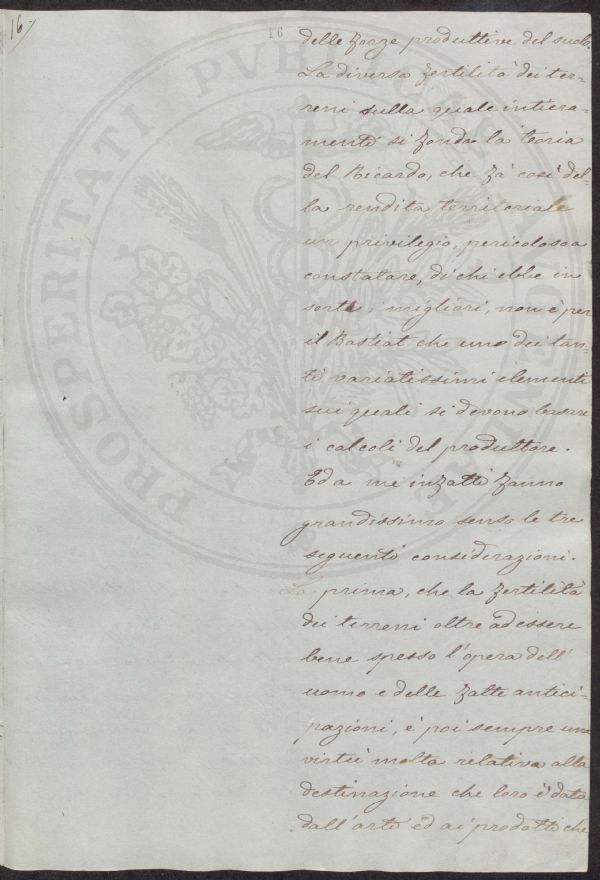 16
16
delle forze produttive del suolo.
La diversa fertilità dei ter=
reni sulla quale intiera=
mente si fonda la teoria
del Ricardo, che fà così del=
la rendita territoriale
un privilegio, pericoloso a
constatare, di chi ebbe in
sorte i migliori, non è per
il Bastiat che uno dei tan=
ti variatissimi elementi
sui quali si devono basare
i calcoli del produttore.
Ed a me infatti fanno
grandissimo senso le tre
seguenti considerazioni.
La prima, che la fertilità
dei terreni oltre ad essere
bene spesso l'opera dell'
uomo e delle fatte antici=
pazioni, è poi sempre una
virtù molta relativa alla
destinazione che loro è data
dall'arte ed ai prodotti che
PROSPERITATI PVBLICAE AVGENDAE